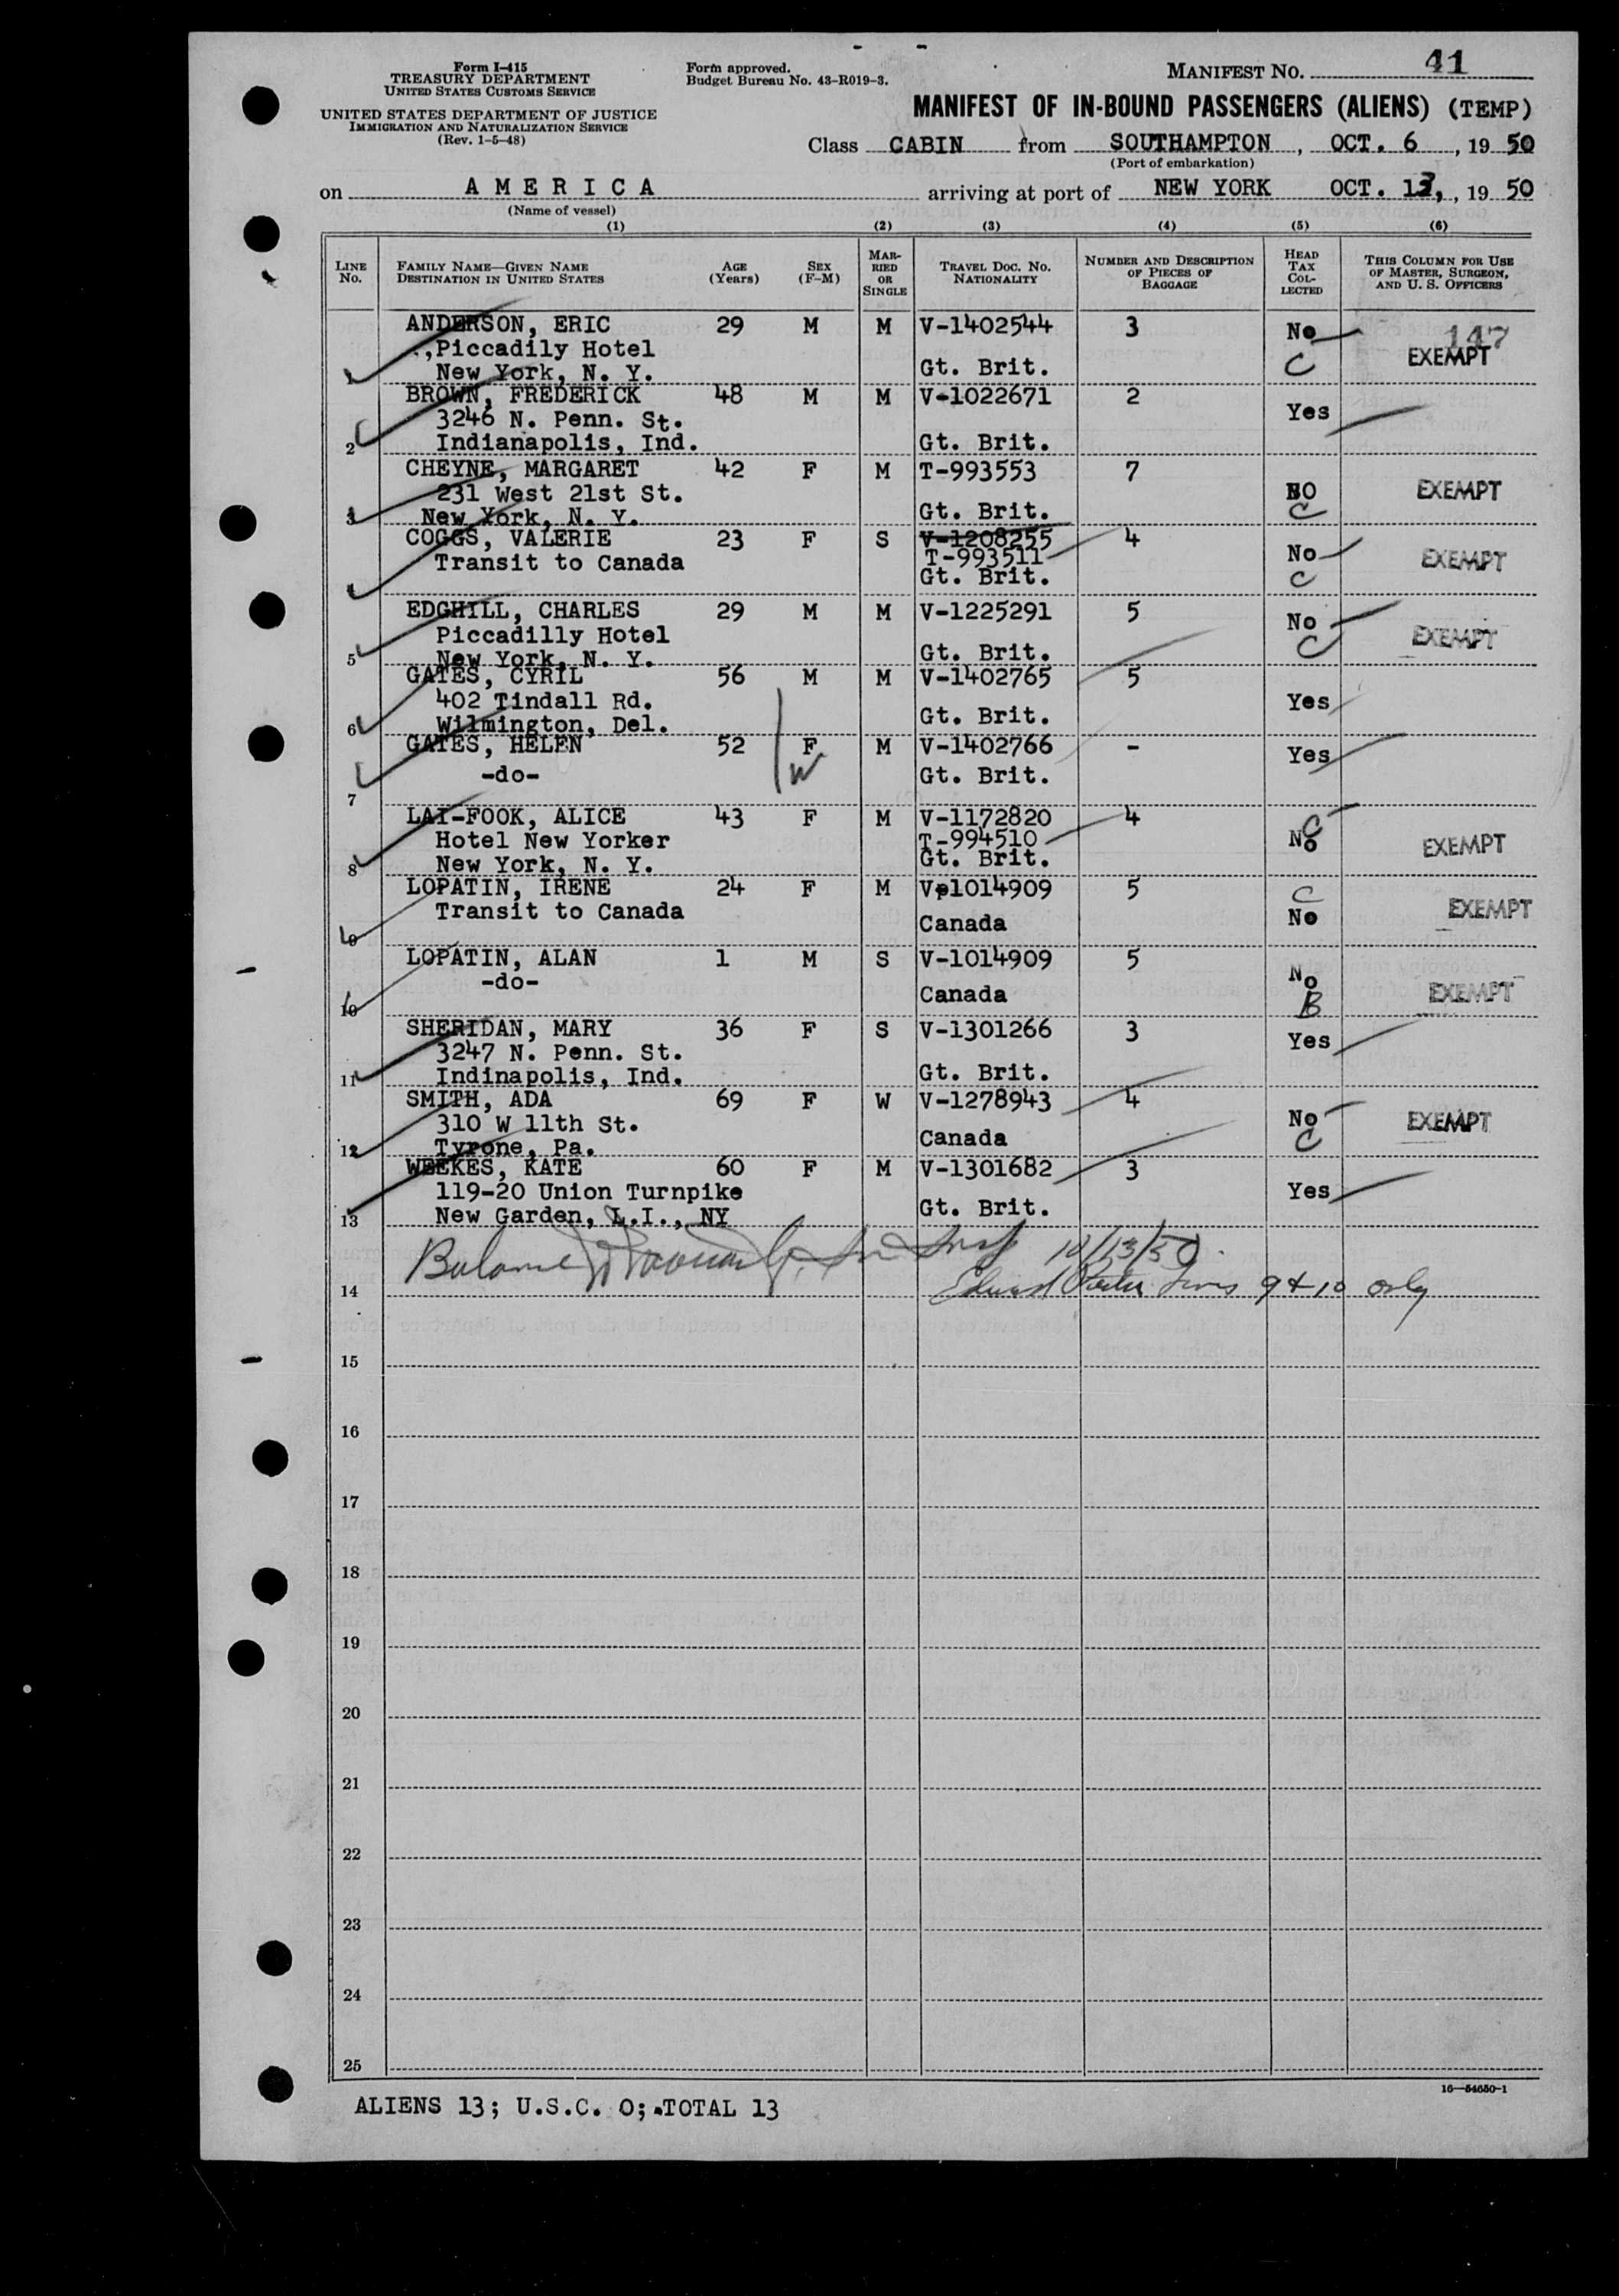 Form I-415
TREASURY DEPARTMENT
UNITED STATES CUSTOMS SERVICE
UNITED STATES DEPARTMENT OF JUSTICE
IMMIGRATION AND NATURALIZATION SERVICE
(Rev. 1-5-48)
Form approved.
Budget Bureau No. 43-R019-3.
MANIFEST NO. 41
MANIFEST OF IN-BOUND PASSENGERS (ALIENS) (TEMP)
Class CABIN from SOUTHAMPTON, OCT. 6, 19 50
(Port of embarkation)
on A M E R I C A arriving at port of NEW YORK OCT. 13, , 19 50
(Name of vessel)
(1) (2) (3) (4) (5) (6)
LINE NO. FAMILY NAME—GIVEN NAME DESTINATION IN UNITED STATES AGE (Years) SEX (F-M) MARRIED OR SINGLE TRAVEL DOC. NO. NATIONALITY NUMBER AND DESCRIPTION OF PIECES OF BAGGAGE HEAD TAX COLLECTED THIS COLUMN FOR USE OF MASTER, SURGEON, AND U. S. OFFICERS
ANDERSON, ERIC 29 M M V-1402544 3 No 147
.,Piccadily Hotel EXEMPT
1 New York, N. Y. Gt. Brit. C
BROWN, FREDERICK 48 M M V-1022671 2 Yes
3246 N. Penn. St.
2 Indianapolis, Ind. Gt. Brit.
CHEYNE, MARGARET 42 F M T-993553 7
231 West 21st St. NO EXEMPT
3 New York, N. Y. Gt. Brit. C
COGGS, VALERIE 23 F S V-1208255 4
Transit to Canada T-993511 No EXEMPT
4 Gt. Brit. C
EDGHILL, CHARLES 29 M M V-1225291 5 No
Piccadilly Hotel EXEMPT
5 New York, N. Y. Gt. Brit. C
GATES, CYRIL 56 M M V-1402765 5
402 Tindall Rd. Yes
6 Wilmington, Del. Gt. Brit.
GATES, HELEN 52 F M V-1402766 - Yes
-do- W Gt. Brit.
7
LAI-FOOK, ALICE 43 F M V-1172820 4 C
Hotel New Yorker T-994510 No EXEMPT
8 New York, N. Y. Gt. Brit.
LOPATIN, IRENE 24 F M V-1014909 5 C
Transit to Canada No EXEMPT
9 Canada
LOPATIN, ALAN 1 M S V-1014909 5
-do- No EXEMPT
10 Canada B
SHERIDAN, MARY 36 F S V-1301266 3
3247 N. Penn. St. Yes
11 Indinapolis, Ind. Gt. Brit.
SMITH, ADA 69 F W V-1278943 4
310 W 11th St. No EXEMPT
12 Tyrone, Pa. Canada C
WEEKES, KATE 60 F M V-1301682 3
119-20 Union Turnpike Yes
13 New Garden, L.I., NY Gt. Brit.
10/13/50.
14 9 + 10 only
15
16
17
18
19
20
21
22
23
24
25
16-54650-1
ALIENS 13; U.S.C. 0; TOTAL 13